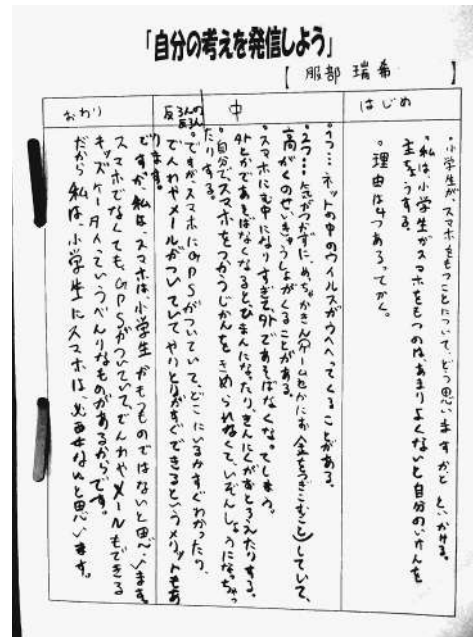 「自分の考えを発信しよう」
【 服部 瑞希 】
はじめ
・小学生が、スマホをもつことについて、どう思いますかと といかける。
・私は、小学生がスマホをもつのは、あまりよくないと自分のいけんを
主ちょうする。
・理由は4つあるってかく。
中
・1つ…ネットの中のウイルスがウヘヘってくることがある。
・2つ…気がつかずに、めちゃかきん(ゲームとかにお金をつぎこむこと)していて、
高がくのせいきゅうしょがくることがある。
・スマホにむ中になりすぎて、外であそばなくなってしまう。
外とかであそばなくなるとひまんになったり、きんにくがおとろえたりする。
・自分でスマホをつかうじかんをきめられなくて、いぞんしょうになっちゃっ
たりする。
反ろんの
反ろん
・ですがスマホにGPSがついていて、どこにいるかすぐわかったり、
でんわやメールがついていてやりとりがすぐできるというメリットもあ
ります。
おわり
ですが、私は、スマホは小学生がもつものではないと思います。
スマホでなくても、GPSがついていて、でんわやメールもできる
キッズケータイっていうべんりなものがあるからです。
だから私は、小学生にスマホは、必要ないと思います。